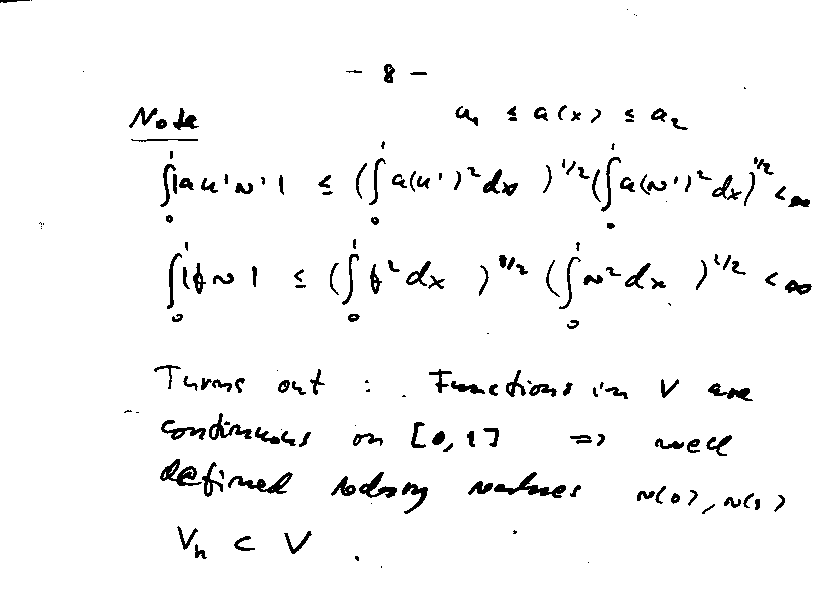 - 8 -
Note a₁ ≤ a(x) ≤ a₂
∫₀¹ |a u' v'| ≤ (∫₀¹ a(u')² dx)^{1/2} (∫₀¹ a(v')² dx)^{1/2} < ∞
∫₀¹ |f v| ≤ (∫₀¹ f² dx)^{1/2} (∫₀¹ v² dx)^{1/2} < ∞
Turns out : Functions in V are
continuous on [0,1] => well
defined v(0), v(1)
V_h ⊂ V .